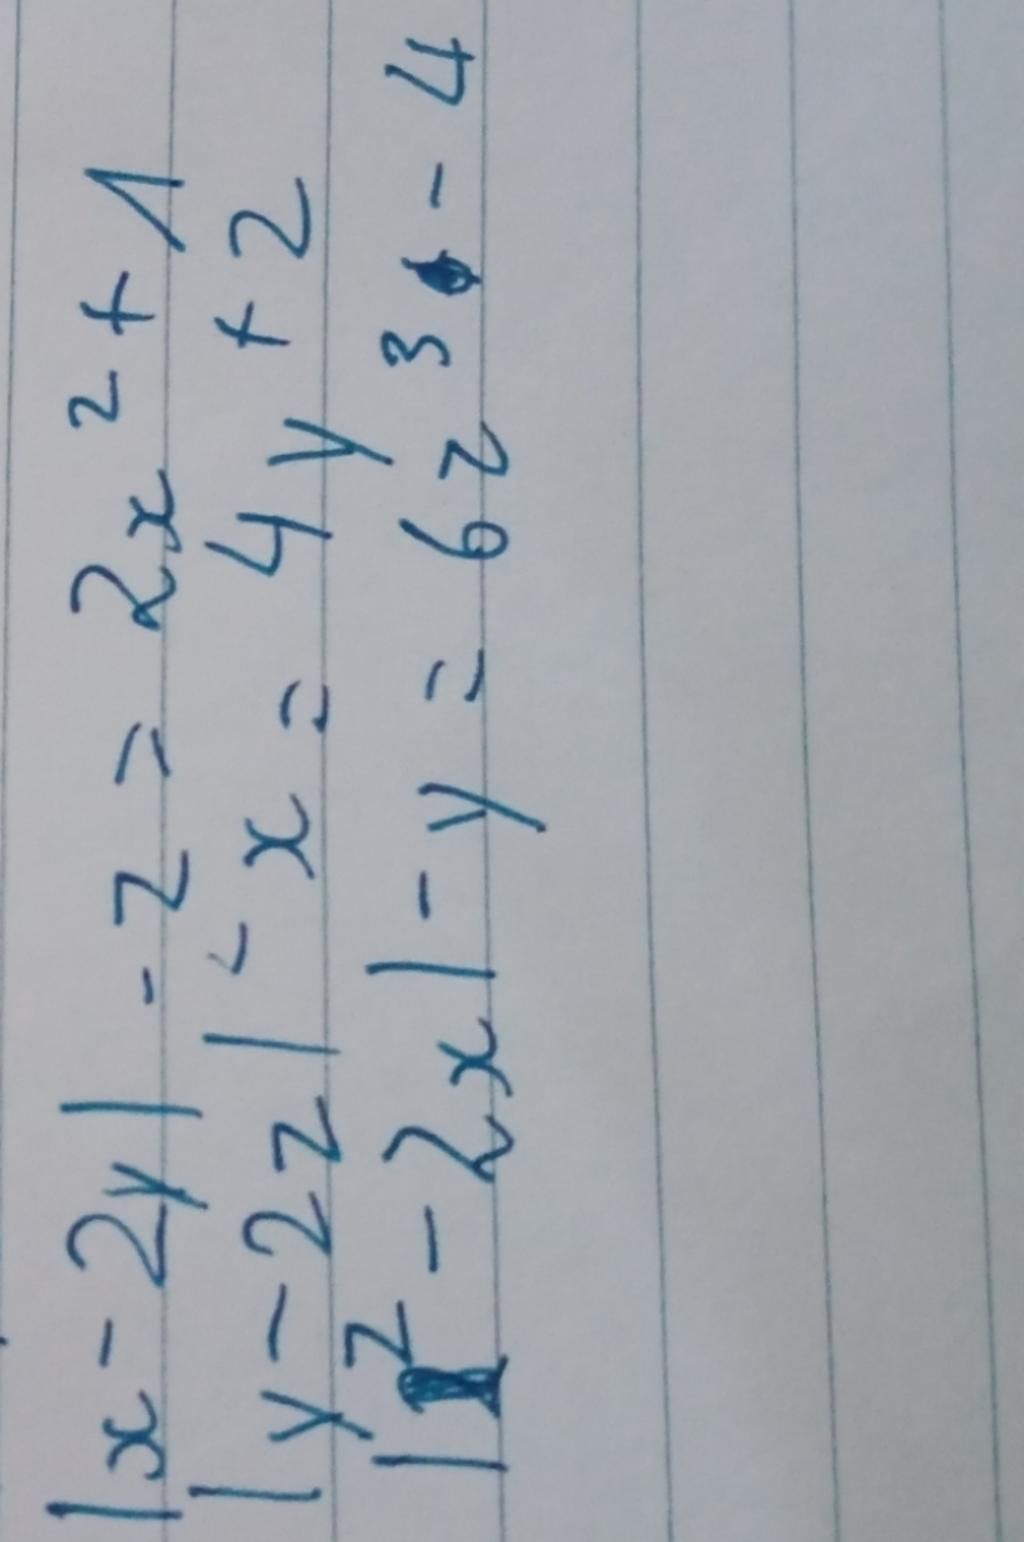 |x - 2y| - z = 2x² + 1
|y - 2z| - x = 4y + 2
|z - 2x| - y = 6z³ - 4